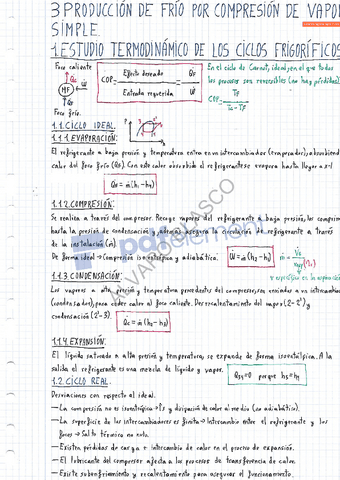 3 PRODUCCIÓN DE FRÍO POR COMPRESIÓN DE VAPOR
SIMPLE.
1. ESTUDIO TERMODINÁMICO DE LOS CICLOS FRIGORÍFICOS
Foco caliente
MF
Foco frío.
COP = Efecto deseado / Entrada requerida = QF / W
En el ciclo de Carnot, ideal, en el que todos
los procesos son reversibles (no hay pérdidas)
COP = TF / TC - TF
1.1. CICLO IDEAL.
1.1.1. EVAPORACIÓN:
El refrigerante a baja presión y temperatura entra en un intercambiador (evaporador), absorbiendo
calor del foco frío (QF). Con este calor absorbido el refrigerante se evapora hasta llegar a 1
1.1.2. COMPRESIÓN:
Se realiza a través del compresor. Recoge vapores del refrigerante a baja presión, los comprime
hasta la presión de condensación y además asegura la circulación de refrigerante a través
de la instalación (ṁ)
De forma ideal → Compresión isentrópica y adiabática.
W = ṁ (h2 - h1)
V específico en la aspiración
1.1.3. CONDENSACIÓN:
Los vapores a alta presión y temperatura procedentes del compresor, son enviados a un intercambiador
(condensador), para ceder calor al foco caliente. Desrecalentamiento del vapor (2-2') y
condensación (2'-3).
Qc = ṁ (h2 - h3)
1.1.4. EXPANSIÓN:
El líquido saturado a alta presión y temperatura, se expande de forma isoentálpica. A la
salida el refrigerante es una mezcla de líquido y vapor.
Q34 = 0 porque h3 = h4
1.2. CICLO REAL.
Desviaciones con respecto al ideal.
— La compresión no es isentrópica → Ps y disipación de calor al medio (no adiabático).
— La superficie de los intercambiadores es finita → Intercambio entre el refrigerante y los
focos → Salto térmico no nulo.
— Existen pérdidas de carga + intercambio de calor en el proceso de expansión.
— El lubricante del compresor afecta a los procesos de transferencia de calor.
— Existe subenfriamiento y recalentamiento para asegurar el funcionamiento.